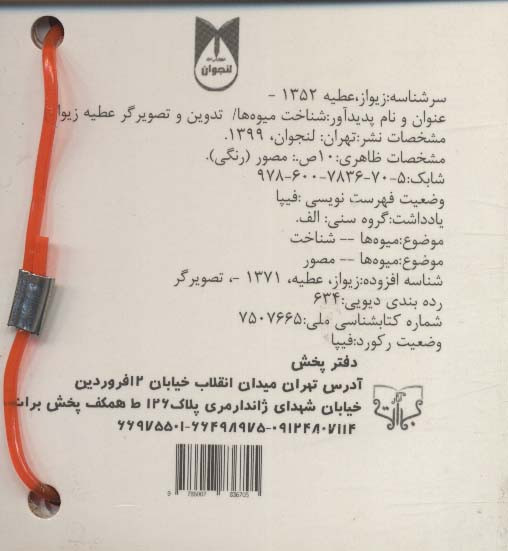 لنجوان
سرشناسه:زیواز،عطیه ۱۳۵۲ -
عنوان و نام پدیدآور:شناخت میوه‌ها/ تدوین و تصویرگر عطیه زیواز
مشخصات نشر:تهران: لنجوان، ۱۳۹۹.
مشخصات ظاهری:۱۰ص.: مصور (رنگی).
شابک:۵-۷۰-۷۸۳۶-۶۰۰-۹۷۸
وضعیت فهرست نویسی :فیپا
یادداشت:گروه سنی: الف.
موضوع:میوه‌ها -- شناخت
موضوع:میوه‌ها -- مصور
شناسه افزوده:زیواز، عطیه، ۱۳۷۱ -، تصویرگر
رده بندی دیویی:۶۳۴
شماره کتابشناسی ملی:۷۵۰۷۶۶۵
وضعیت رکورد:فیپا
دفتر پخش
آدرس تهران میدان انقلاب خیابان ۱۲فروردین
خیابان شهدای ژاندارمری پلاک۱۲۶ ط همکف پخش برات
۶۶۹۷۵۵۰۱-۶۶۴۹۸۹۷۵-۰۹۱۲۴۸۰۷۱۱۴
9 786007 836705